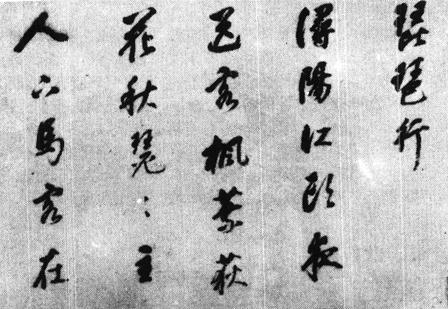 琵琶行
潯陽江頭夜
送客楓葉荻
花秋瑟〻主
人下馬客在